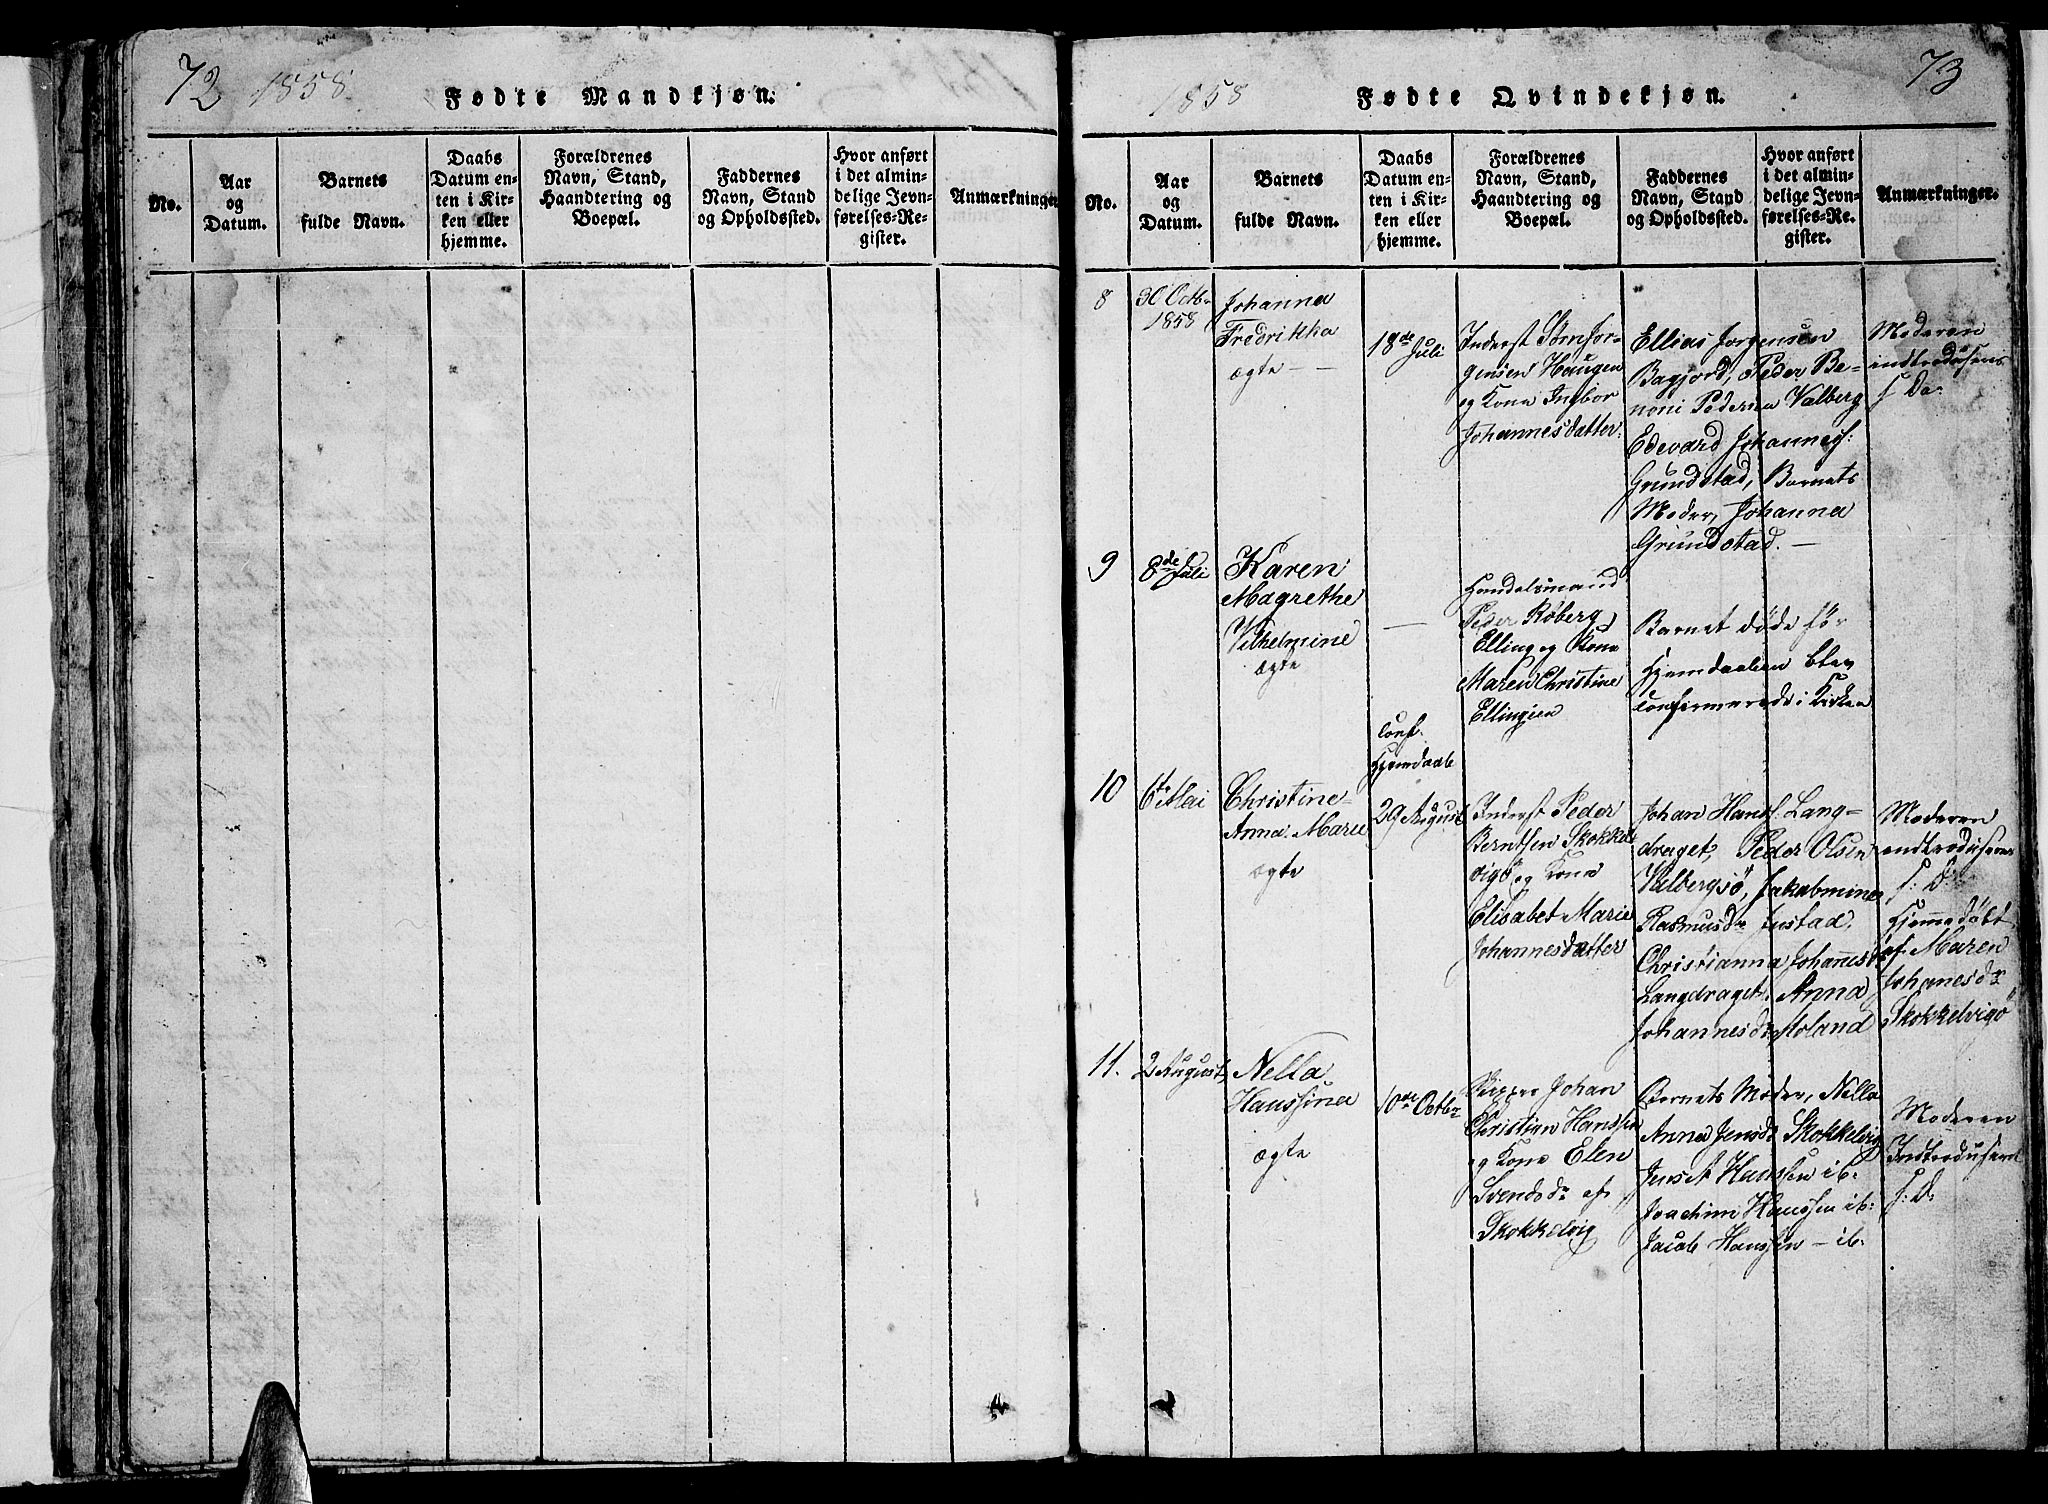 72 1858
Fødte Mandkjøn.
No.
Aar
og
Datum.
Barnets
fulde Navn.
Daabs
Datum en-
ten i Kir-
ken eller
hjemme.
Forældrenes
Navn, Stand,
Haandtering og
Boepæl.
Faddernes
Navn, Stand
og Opholdssted.
Hvor anført
i det almin-
delige Jevn-
førelses-Re-
gister.
Anmærkninger
1858
Fødte Qvindekjøn.
73
No.
Aar
og
Datum.
Barnets
fulde Navn.
Daabs
Datum en-
ten i Kir-
ken eller
hjemme.
Forældrenes
Navn, Stand,
Haandtering og
Boepæl.
Faddernes
Navn, Stand
og Opholdssted.
Hvor anført
i det almin-
delige Jevn-
førelses-Re-
gister.
Anmærkninger.
8
30 Octb.
1858
Johanna
Fredrikka
ægte
18de Juli
Inderst Sørn Jør-
gensen Haugen
og Kone Ingbor
Johannesdatter.
Ellias Jørgensen
Bagjord, Peder Be-
noni Pedersen Valberg
Edevard Johannesf:
Grundstad, Barnets
Moder, Johanna
Grundstad. —
Moderen
indtroduseres
s. Da.
9
8de Juli
Karen
Magrethe
Vilhelmine
ægte
—
Handelsmand
Peder Röberg
Elling og Kone
Maren Christine
Ellingsen
Barnet döde för
Hjemdaaben blev
confirmerede i Kirken
10
6te Mai
Christine
Anna Marie
ægte
Conf.
Hjemdaab
29 August
Inderst Peder
Berntsen Skokkel
vigö og Kone
Elisabet Marie
Johannesdatter
Johan Hanss. Lang-
draget, Peder Olsen
Valbergsö, Jakabmine
Rasmusdr Justad,
Christianna Johannesdr
Langdraget, Anna
Johannesdr Moland
Moderen
indtroduseres
s: D:
Hjemmedöbt
af Maren
Johanesdr
Skokkelvigö
11.
2 August,
Nella
Hanssina
ægte
10de Octbr
Skipper Johan
Christian Hanssen
og Kone Elen
Svendsdr af
Skokkelvig
Barnets Moder, Nella
Anna Jensdr Skokkelvig
Jenset Hanssen ib:
Joachim Hanssen ib:
Jacob Hanssen — ib:
Moderen
Indtroduseres
s: D: